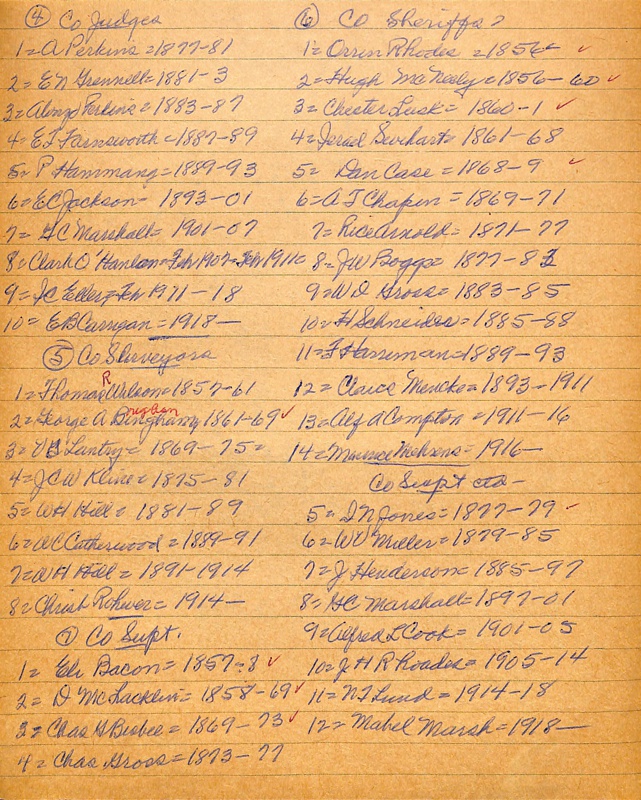 ④ Co Judges
1= A Perkins = 1877-81
2= E N Grennell = 1881-3
3= Alonzo Perkins = 1883-87
4= E L Farnsworth = 1887-89
5= P Hammang = 1889-93
6= E C Jackson = 1893-01
7= H C Marshall = 1901-07
8= Clark O Hanlon = Feb 1907 = Feb 1911 =
9= J C Eller = Feb 1911-18
10= E B Carrigan = 1918-
⑤ Co Surveyors
1= Thomas R Wilson = 1857-61
2= George A Bingham 1861-69 ✓
3= Lantry = 1869-75 =
4= J C W Kline = 1875-81
5= W H Hill = 1881-89
6= W C Catherwood = 1889-91
7= W H Hill = 1891-1914
8= Christ Rohwer = 1914-
⑦ Co Supt.
1= Eli Bacon = 1857-8 ✓
2= D McLacklin = 1858-69 ✓
3= Chas G Bisbee = 1869-73 ✓
4= Chas Gross = 1873-77
⑥ Co Sheriffs
1= Orrin Rhodes = 1856 ✓
2= Hugh McNeely = 1856-60 ✓
3= Chester Lusk = 1860-1 ✓
4= Israel Swihart = 1861-68
5= Dan Case = 1868-9 ✓
6= A T Chapin = 1869-71
7= Rice Arnold = 1871-77
8= J W Boggs = 1877-83
9= W D Gross = 1883-85
10= H Schneider = 1885-88
11= Harriman = 1889-93
12= Claus Mencke = 1893-1911
13= Alf A Compton = 1911-16
14= Maurice Mehrens = 1916-
Co Supt ctd-
5= D N Jones = 1877-79 ✓
6= W D Miller = 1879-85
7= J Henderson = 1885-97
8= H C Marshall = 1897-01
9= Alfred L Cook = 1901-05
10= J H R Rhoades = 1905-14
11= N T Lund = 1914-18
12= Mabel Marsh = 1918-